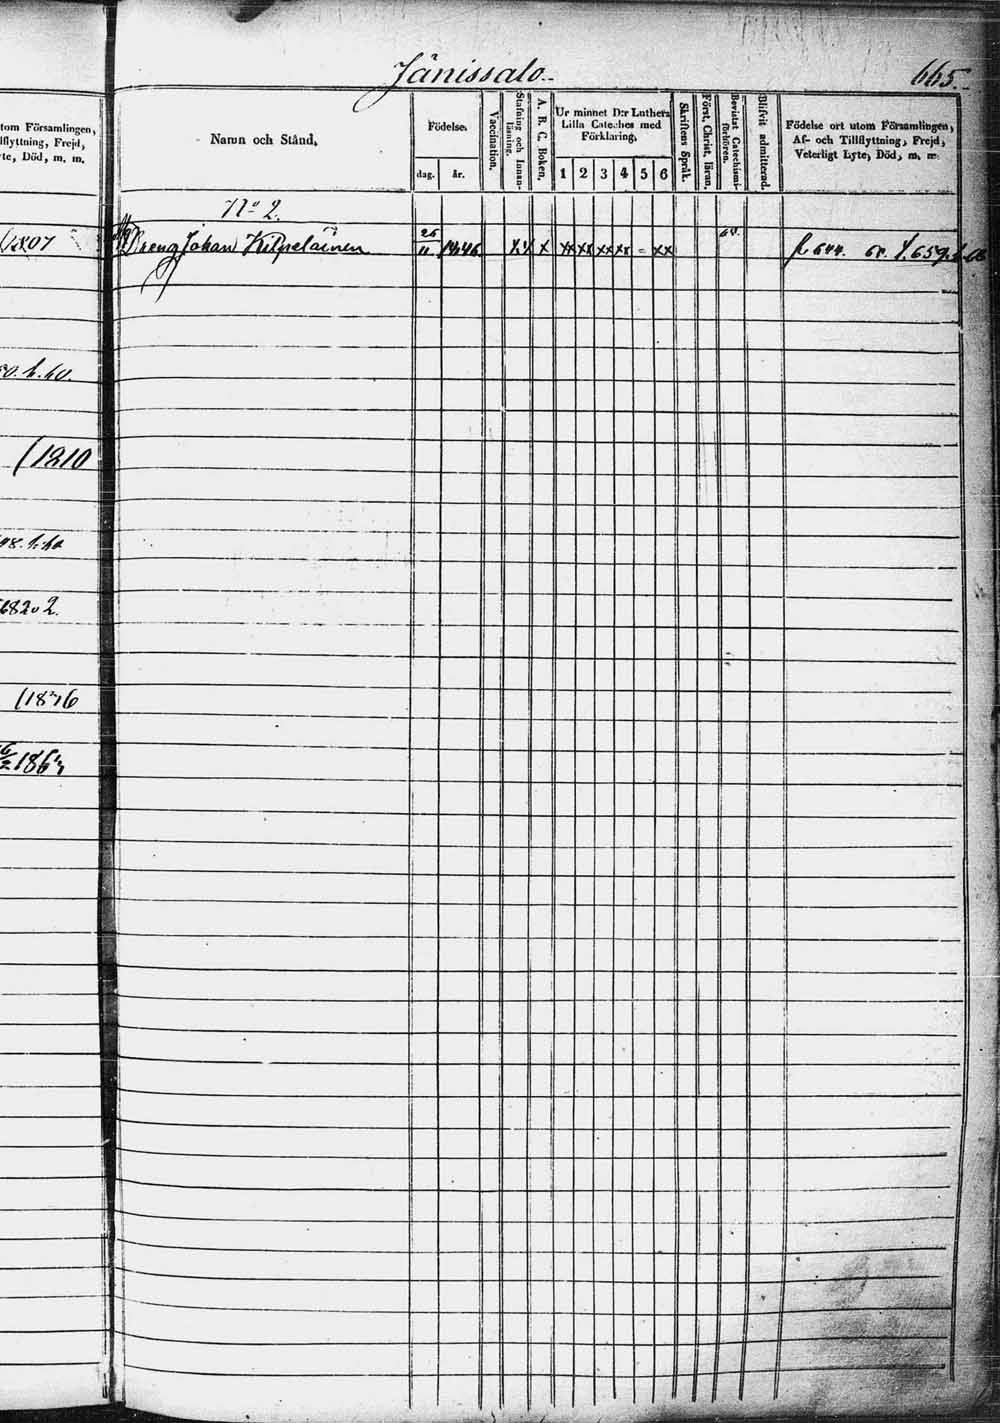 Jänissalo
665.
tom Församlingen,
lflyttning, Frejd,
te, Död, m. m.
Namn och Stånd,
Födelse.
dag. år.
Vaccination.
Stafning och Innanläsning.
A. B. C. Boken,
Ur minnet D:r Luthers
Lilla Cateches med
Förklaring,
1 2 3 4 5 6
Skriftens Språk.
Först. Christ. läran.
Bevistat Catechismiförhören.
Blifvit admitterad.
Födelse ort utom Församlingen,
Af- och Tillflyttning, Frejd,
Veterligt Lyte, Död, m. m.
No 2.
Dreng Johan Kilpeläinen 11. 1846. x x x xx xx xx xx = xx f. 644. 65. f. 659.
1807
(1810
682 o 2.
(1836